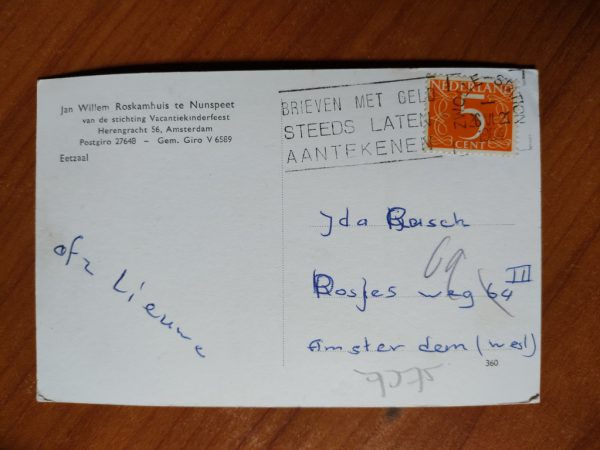 Jan Willem Roskamhuis te Nunspeet
van de stichting Vacantiekinderfeest
Herengracht 56, Amsterdam
Postgiro 27648 – Gem. Giro V 6589
Eetzaal
BRIEVEN MET GELD
STEEDS LATEN
AANTEKENEN
NEDERLAND
5
CENT
Jda Bosch
69
Rosjes weg 64 III
Amsterdam (west)
360
afz Lieuwe